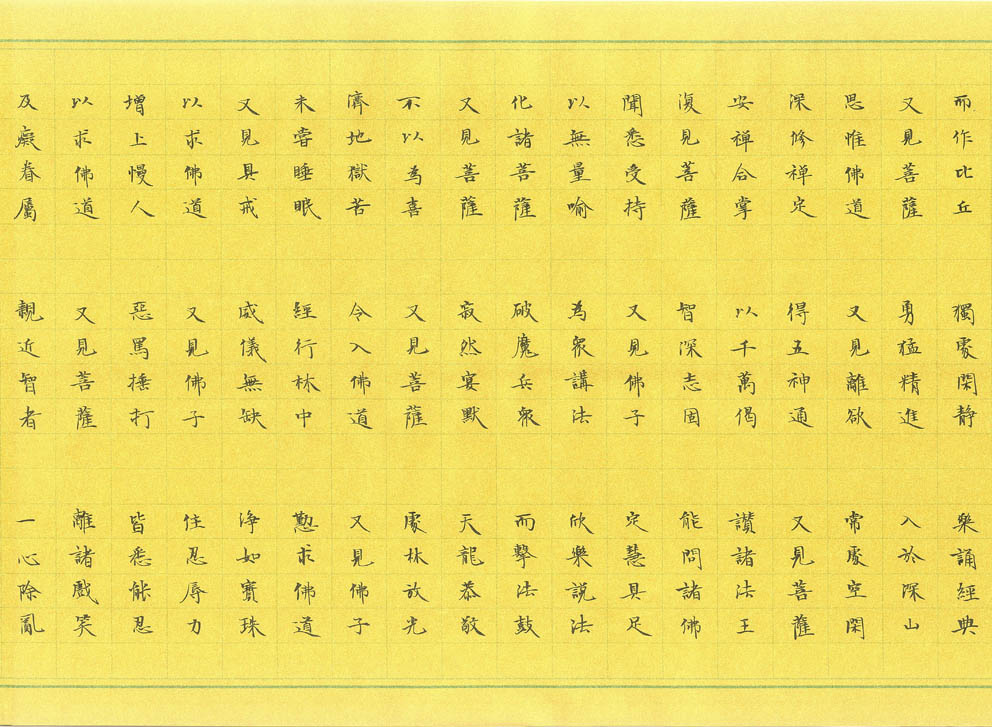 而作比丘 獨處閑静 樂誦經典
又見菩薩 勇猛精進 入於深山
思惟佛道 又見離欲 常處空閑
深修禅定 得五神通 又見菩薩
安禅合掌 以千萬偈 讃諸法王
復見菩薩 智深志固 能問諸佛
聞悉受持 又見佛子 定慧具足
以無量喻 為衆講法 欣樂説法
化諸菩薩 破魔兵衆 而擊法鼓
又見菩薩 寂然宴默 天龍恭敬
不以為喜 又見菩薩 處林放光
濟地獄苦 令入佛道 又見佛子
未嘗睡眠 經行林中 懃求佛道
又見具戒 威儀無缺 浄如寶珠
以求佛道 又見佛子 住忍辱力
増上慢人 惡罵捶打 皆悉能忍
以求佛道 又見菩薩 離諸戲笑
及癡眷屬 親近智者 一心除亂